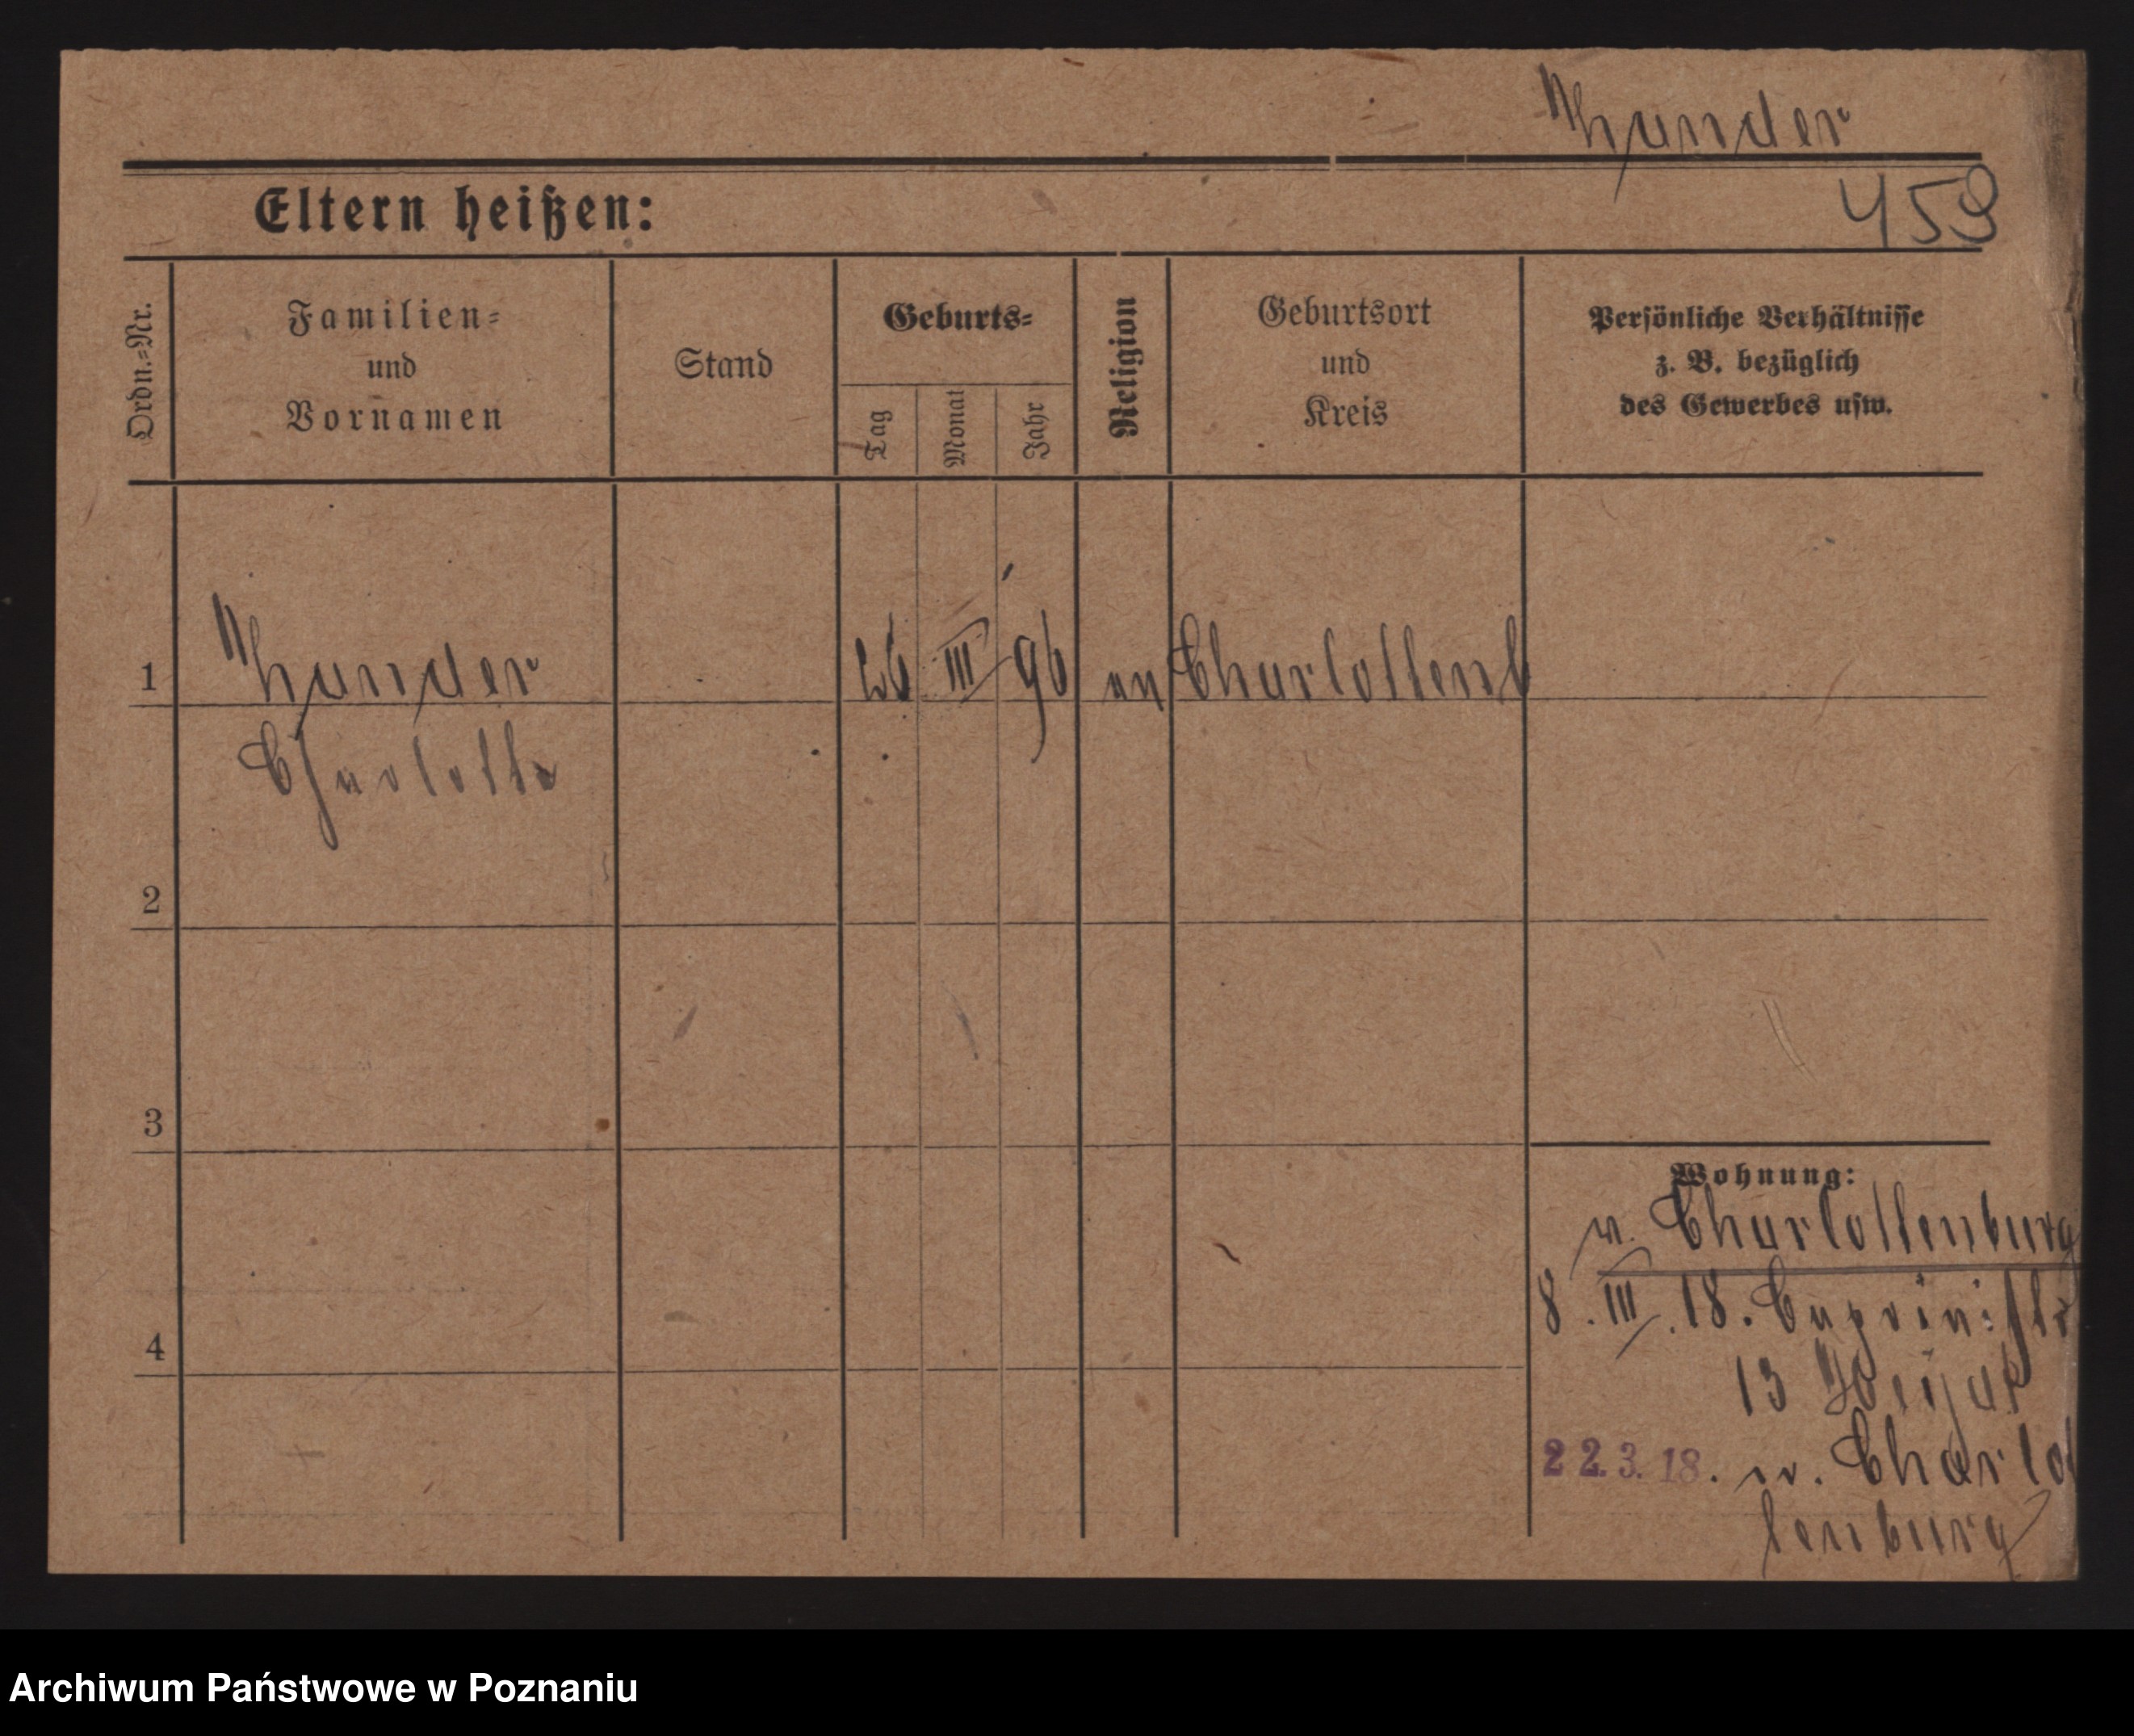 Thunder
459
Eltern heißen:
Ordn.-Nr.
Familien-
und
Vornamen
Stand
Geburts-
Tag
Monat
Jahr
Religion
Geburtsort
und
Kreis
Persönliche Verhältnisse
z. B. bezüglich
des Gewerbes usw.
1
26 III 96
Charlottenb
Charlotte
2
3
4
Wohnung:
v. Charlottenburg
8. III. 18.
13
22.3.18. v. Charlot
tenburg
Archiwum Państwowe w Poznaniu